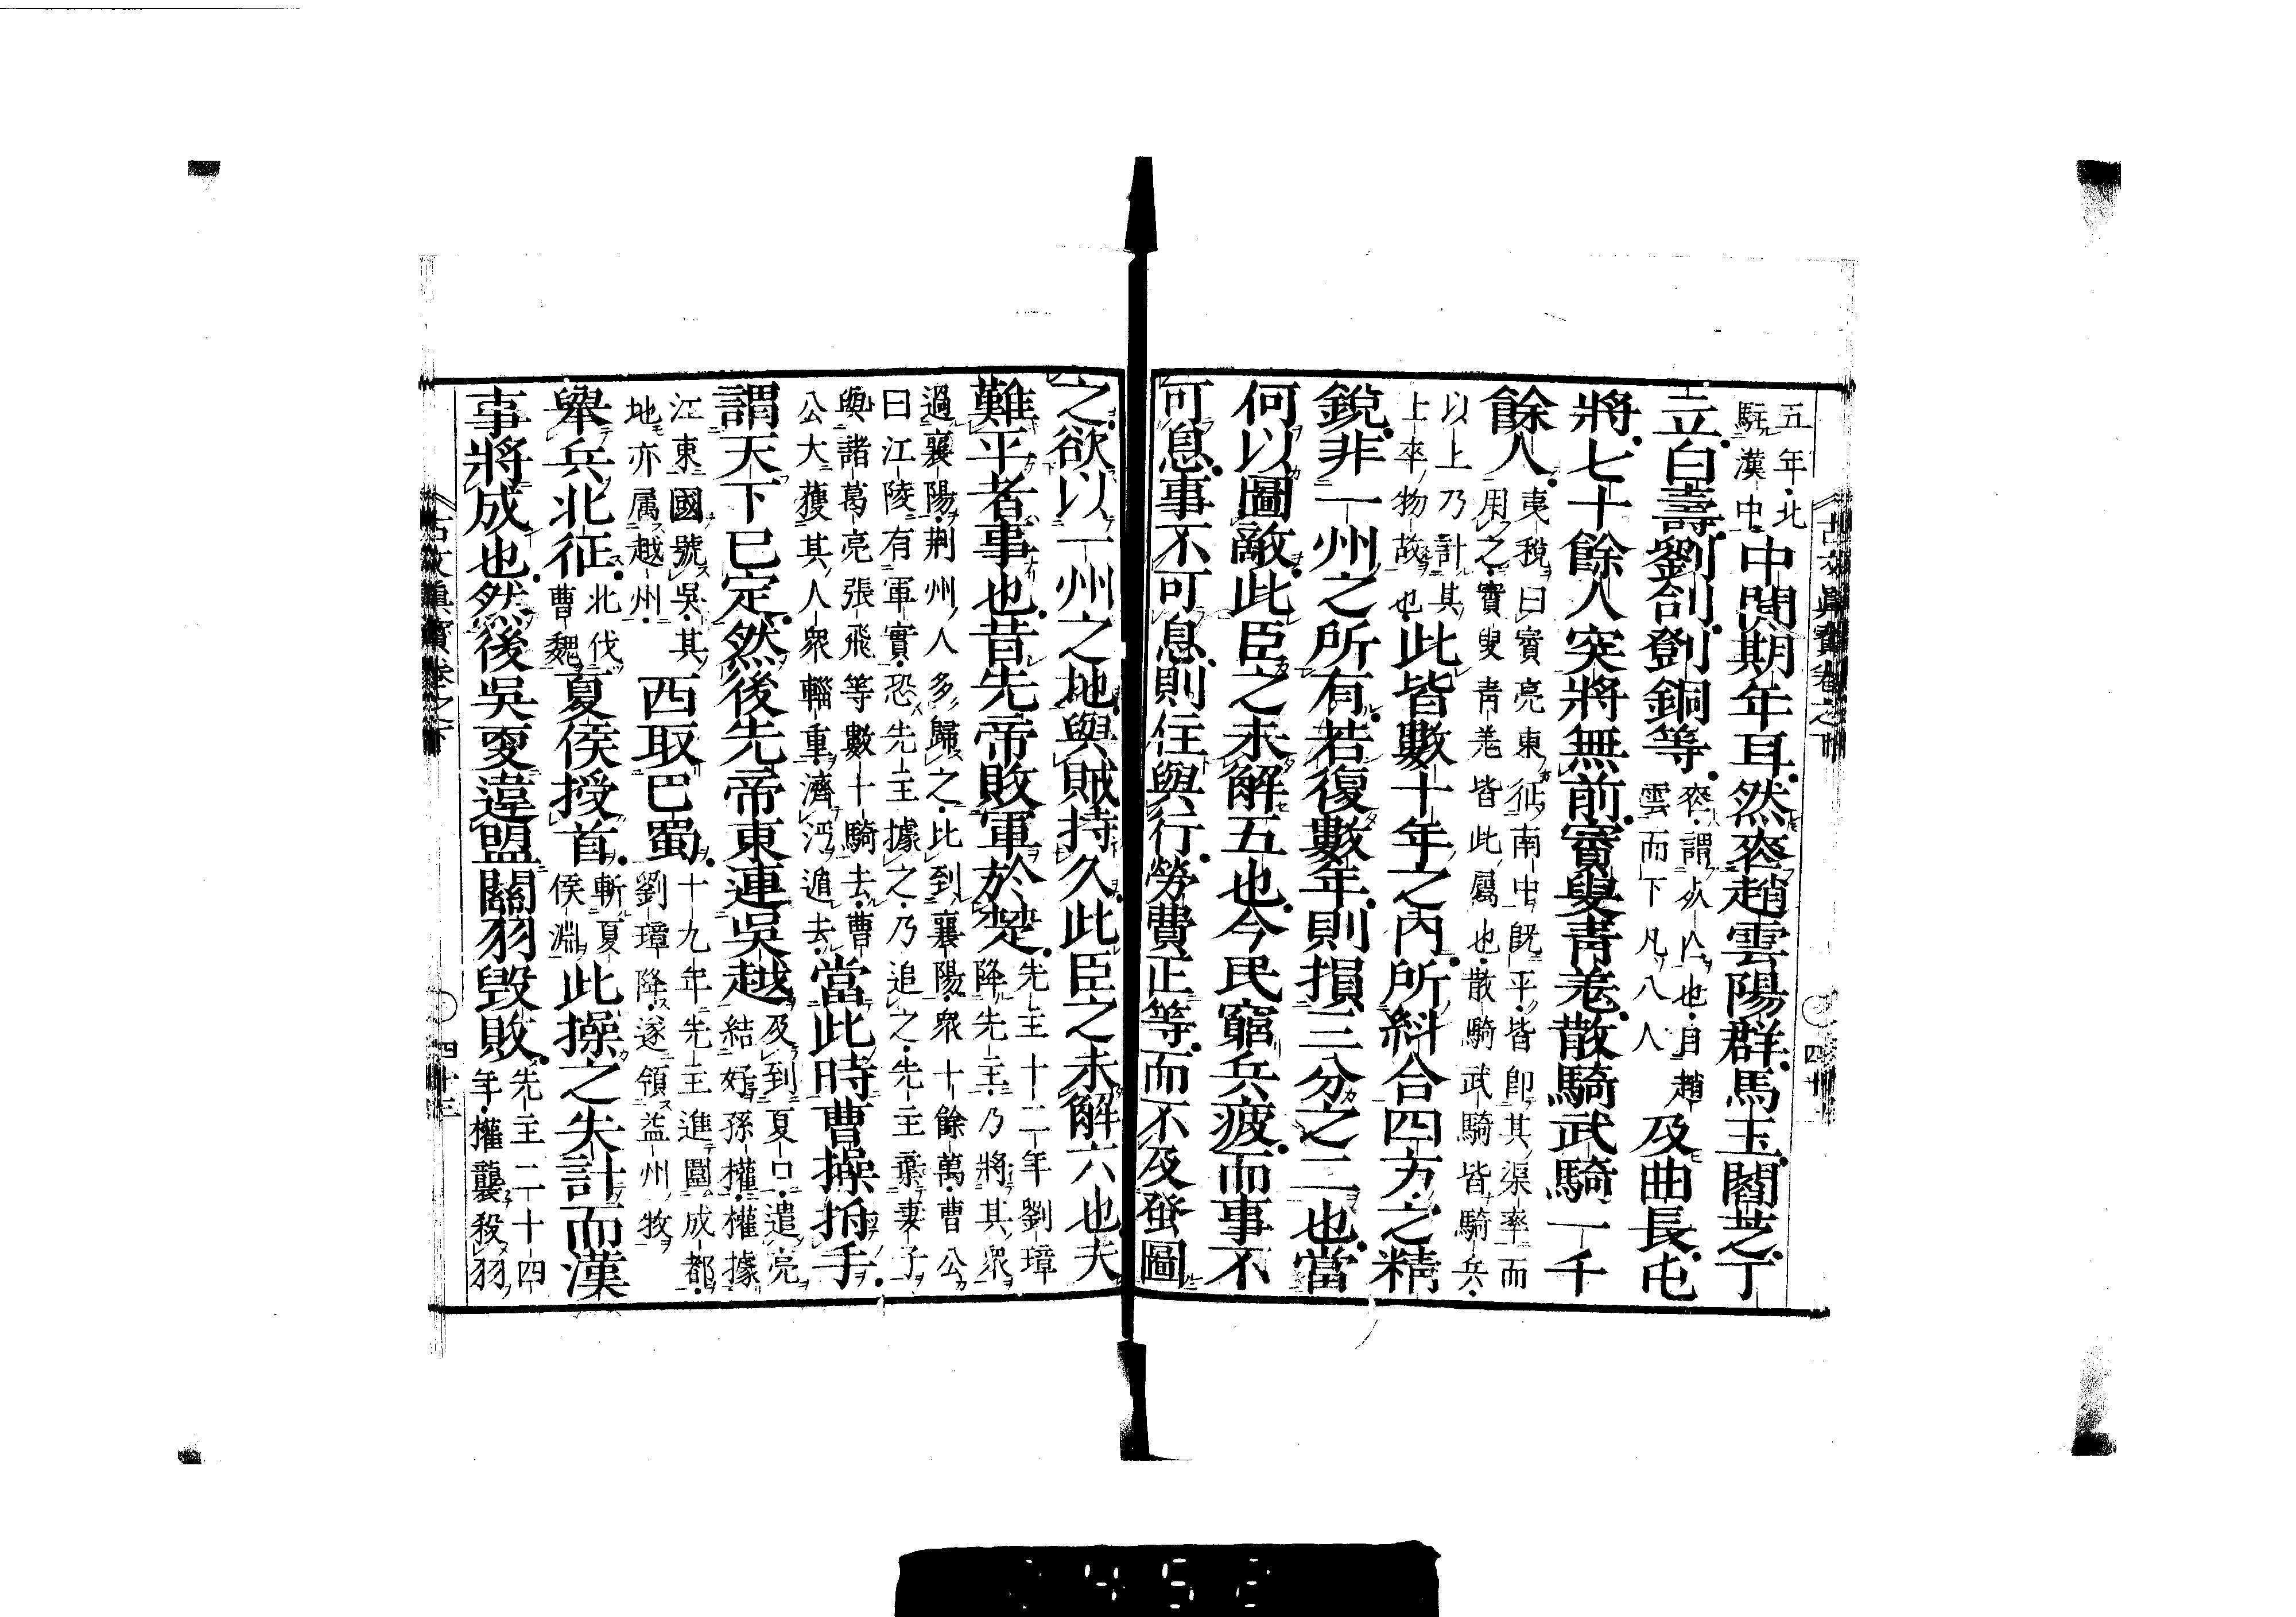 五年北
駐漢中中間期年耳然喪趙雲陽群馬玉閻芝丁
立白壽劉郃鄧銅等喪謂死亡也自趙
雲而下凡八人及曲長屯
將七十餘人突將無前賨叟青羗散騎武騎一千
餘人夷稅曰賨亮東征南中既平皆即其渠率而
用之賨叟青羗皆此屬也散騎武騎皆騎兵
以上乃計其
上卒物故也此皆數十年之內所糾合四方之精
銳非一州之所有若復數年則損三分之二也當
何以圖敵此臣之未解五也今民窮兵疲而事不
可息事不可息則住與行勞費正等而不及蚤圖
之欲以一州之地與賊持久此臣之未解六也夫
難平者事也昔先帝敗軍於楚先主十二年劉璋
降先主乃將其衆
過襄陽荆州人多歸之比到襄陽衆十餘萬曹公
曰江陵有軍實恐先主據之乃追之先主棄妻子
與諸葛亮張飛等數十騎去曹
公大獲其人衆輜重濟沔遁去當此時曹操拊手
謂天下已定然後先帝東連吳越及到夏口遣亮
結好孫權權據
江東國號吳其
地亦属越州西取巴蜀十九年先主進圍成都
劉璋降遂領益州牧
舉兵北征北伐
曹魏夏侯授首斬夏
侯淵此操之失計而漢
事將成也然後吳更違盟關羽毀敗先主二十四
年權襲殺羽
古文眞寳卷之下
四十三